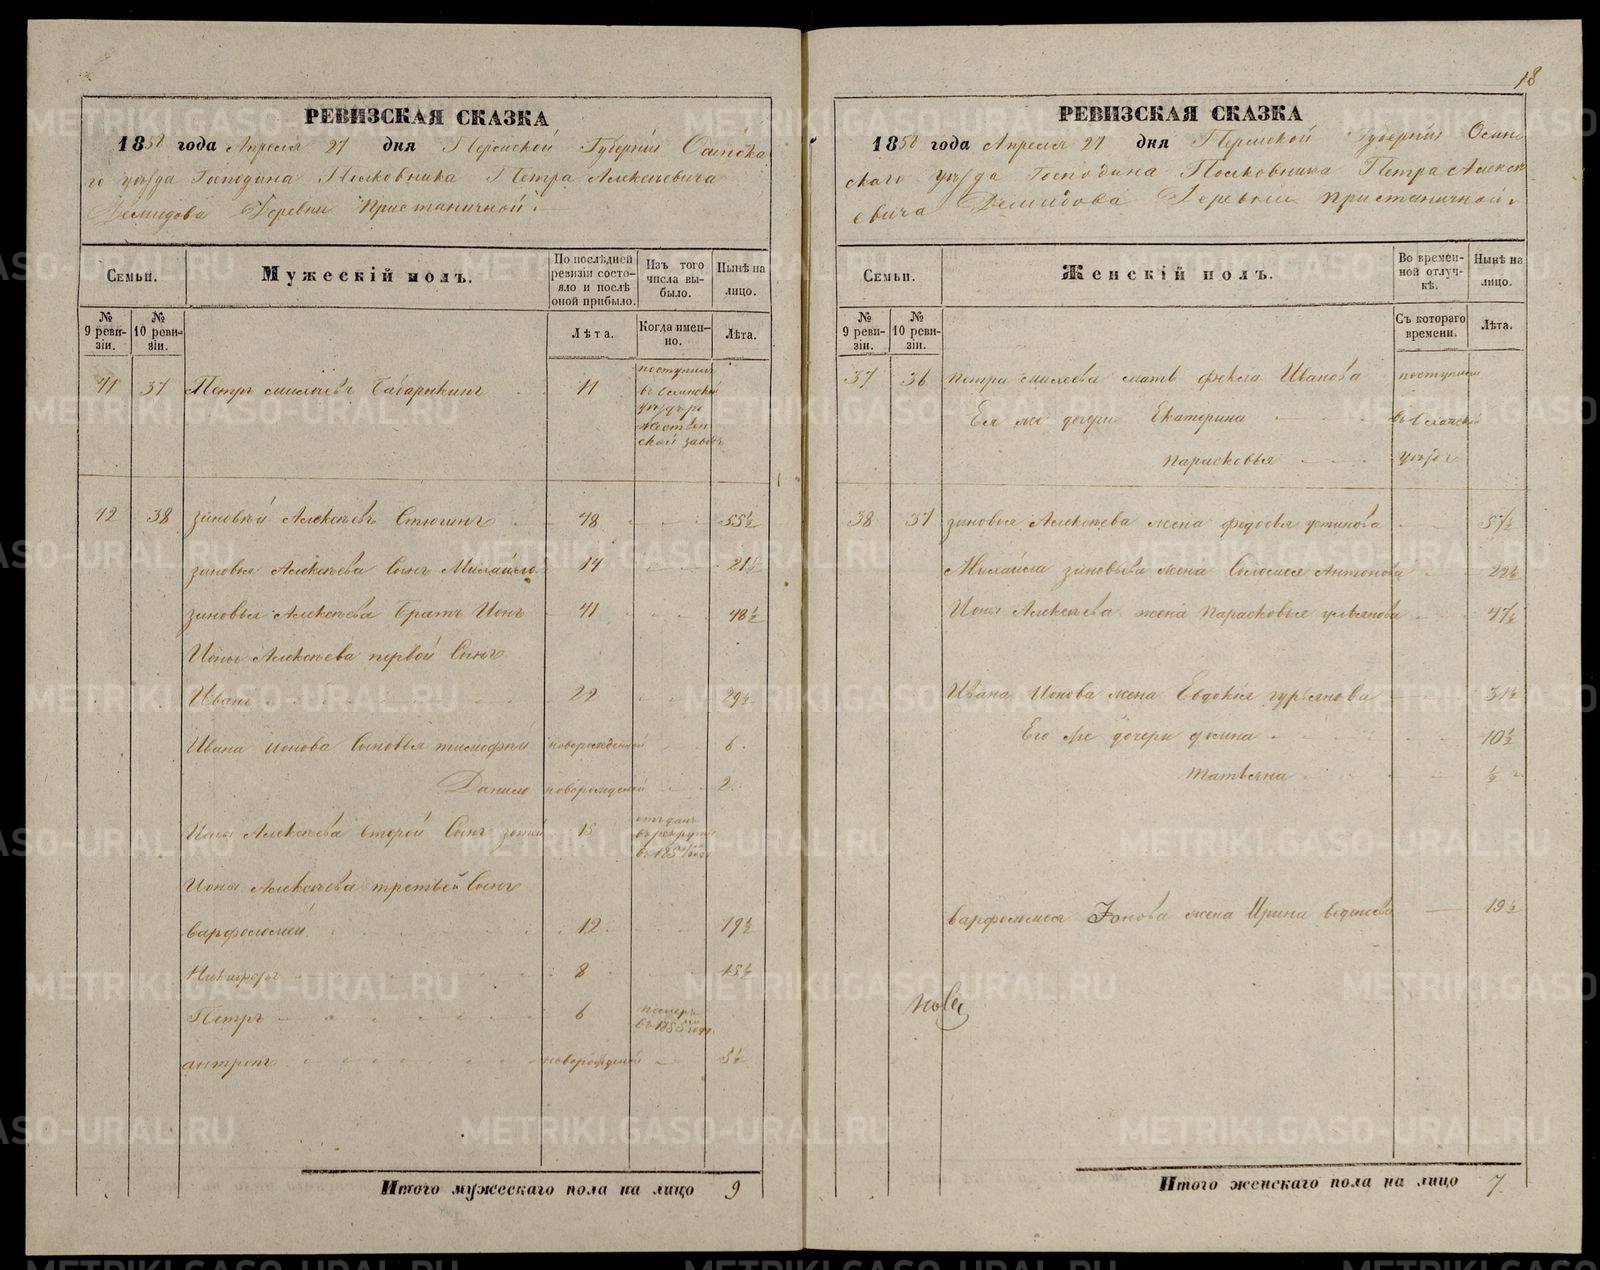 18
РЕВИЗСКАЯ СКАЗКА
1858 года Апреля 27 дня Пермской Губернии Осинска
го уѣзда Господина Полковника Петра Алексѣевича
Демидова Деревни Пристаничной.
Семьи.
Мужескій полъ.
По послѣдней ревизіи состояло и послѣ оной прибыло.
Изъ того числа выбыло.
Нынѣ на лицо.
№ 9 ревизіи.
№ 10 ревизіи.
Лѣта.
Когда именно.
Лѣта.
41 37 Петръ Бабарикинъ 11 поступилъ
въ
уѣзд
завод
42 38 Зиновѣй Алексѣевъ 48 55½
Зиновья Алексѣева Сынъ Михайло 14 21½
Зиновья Алексѣева Братъ Ионъ 41 48½
Ионы Алексѣева первой Сынъ
Иванъ 22 29½
Ивана Ионова Сыновья тимофѣй новорожденной 6
Данило новорожденной 2
Ионы Алексѣева второй Сынъ 15 отъданъ
въ рекруты
въ 185
Ионы Алексѣева третьей Сынъ
варфоломей 12 19½
Никифоръ 8 15½
Петръ 6 померъ
въ 1855 году
антропъ новорожденой 5½
Итого мужескаго пола на лицо 9
РЕВИЗСКАЯ СКАЗКА
1858 года Апреля 27 дня Пермской Губернии Осин
скаго уѣзда Господина Полковника Петра Алексѣ
евича Демидова Деревни пристаничной.
Семьи.
Женскій полъ.
Во временной отлучкѣ.
Нынѣ на лицо.
№ 9 ревизіи.
№ 10 ревизіи.
Съ котораго времени.
Лѣта.
37 36 Петра мать фекла Иванова поступили
Ея же дочери Екатерина въ
Парасковья уѣзд
38 37 зиновья Алексѣева жена федосья устинова 57½
Михайла зиновьева жена Соломея Антонова 22½
Ионы Алексѣева жена Парасковья ульянова 47½
Ивана Ионова жена Евдокия гурьянова 31½
Его же дочери домна 10½
татьяна ½
варфоломея Іонова жена Ирина 19½
Итого женскаго пола на лицо 7
METRIKI.GASO-URAL.RU